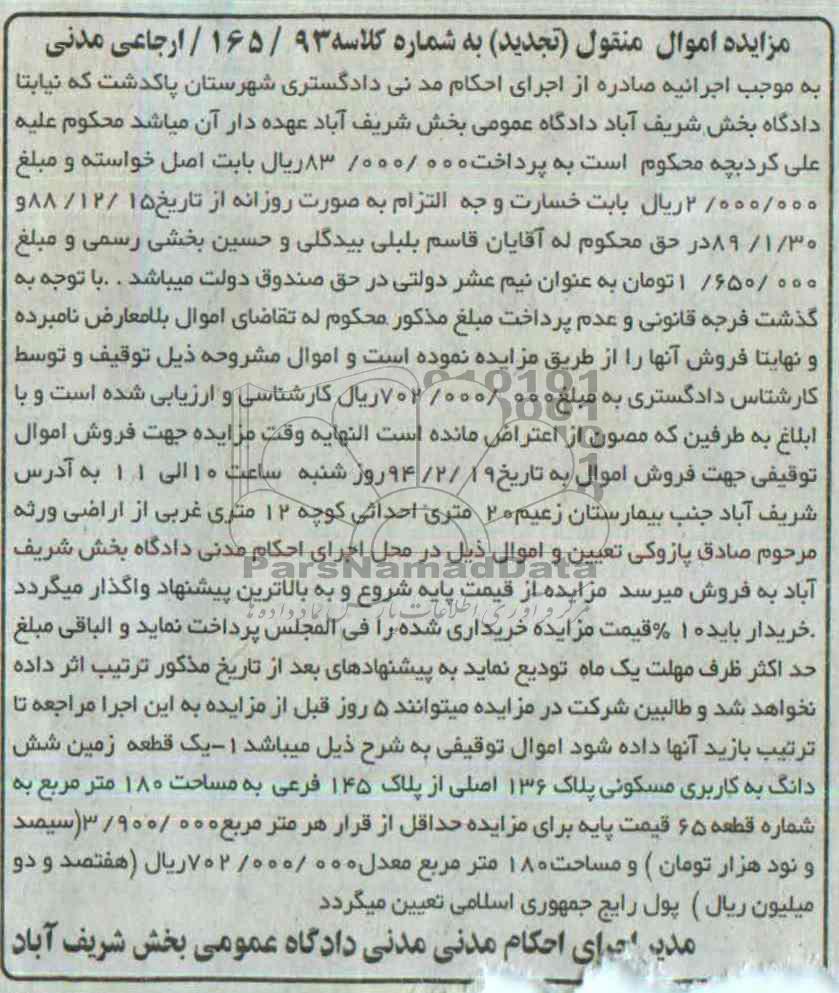 مزایده اموال منقول (تجدید) به شماره کلاسه۹۳ / ۱۶۵ /ارجاعی مدنی
به موجب اجرائیه صادره از اجرای احکام مد نی دادگستری شهرستان پاکدشت که نیابتا
دادگاه بخش شریف آباد دادگاه عمومی بخش شریف آباد عهده دار آن میاشد محکوم علیه
علی کردبچه محکوم است به پرداخت۰۰۰/۰۰۰/ ۸۳ریال بابت اصل خواسته و مبلغ
۲/۰۰۰/۰۰۰ریال بابت خسارت و جه التزام به صورت روزانه از تاریخ۱۵ /۱۲/ ۸۸و
۸۹/۱/۳۰در حق محکوم له آقایان قاسم بلبلی بیدگلی و حسین بخشی رسمی و مبلغ
۰۰۰ /۶۵۰/ ۱تومان به عنوان نیم عشر دولتی در حق صندوق دولت میباشد . .با توجه به
گذشت فرجه قانونی و عدم پرداخت مبلغ مذکور محکوم له تقاضای اموال بلامعارض نامبرده
و نهایتا فروش آنها را از طریق مزایده نموده است و اموال مشروحه ذیل توقیف و توسط
کارشناس دادگستری به مبلغ۰۰۰ /۰۰۰/ ۷۰۲ریال کارشناسی و ارزیابی شده است و با
ابلاغ به طرفین که مصون از اعتراض مانده است النهایه وقت مزایده جهت فروش اموال
توقیفی جهت فروش اموال به تاریخ۱۹ /۲/ ۹۴روز شنبه ساعت ۱۰الی ۱۱ به آدرس
شریف آباد جنب بیمارستان زعیم۲۰ متری احداثی کوچه ۱۲ متری غربی از اراضی ورثه
مرحوم صادق پازوکی تعیین و اموال ذیل در محل اجرای احکام مدنی دادگاه بخش شریف
آباد به فروش میرسد مزایده از قیمت پایه شروع و به بالاترین پیشنهاد واگذار میگردد
.خریدار باید۱۰ %قیمت مزایده خریداری شده را فی المجلس پرداخت نماید و الباقی مبلغ
حد اکثر ظرف مهلت یک ماه تودیع نماید به پیشنهادهای بعد از تاریخ مذکور ترتیب اثر داده
نخواهد شد و طالبین شرکت در مزایده میتوانند ۵ روز قبل از مزایده به این اجرا مراجعه تا
ترتیب بازید آنها داده شود اموال توقیفی به شرح ذیل میباشد ۱-یک قطعه زمین شش
دانگ به کاربری مسکونی پلاک ۱۳۶ اصلی از پلاک ۱۴۵ فرعی به مساحت ۱۸۰ متر مربع به
شماره قطعه ۶۵ قیمت پایه برای مزایده حداقل از قرار هر متر مربع۰۰۰ /۹۰۰/ ۳(سیصد
و نود هزار تومان ) و مساحت۱۸۰ متر مربع معدل۰۰۰ /۰۰۰/ ۷۰۲ریال (هفتصد و دو
میلیون ریال ) پول رایج جمهوری اسلامی تعیین میگردد
مدیر اجرای احکام مدنی مدنی دادگاه عمومی بخش شریف آباد
ParsNamadData